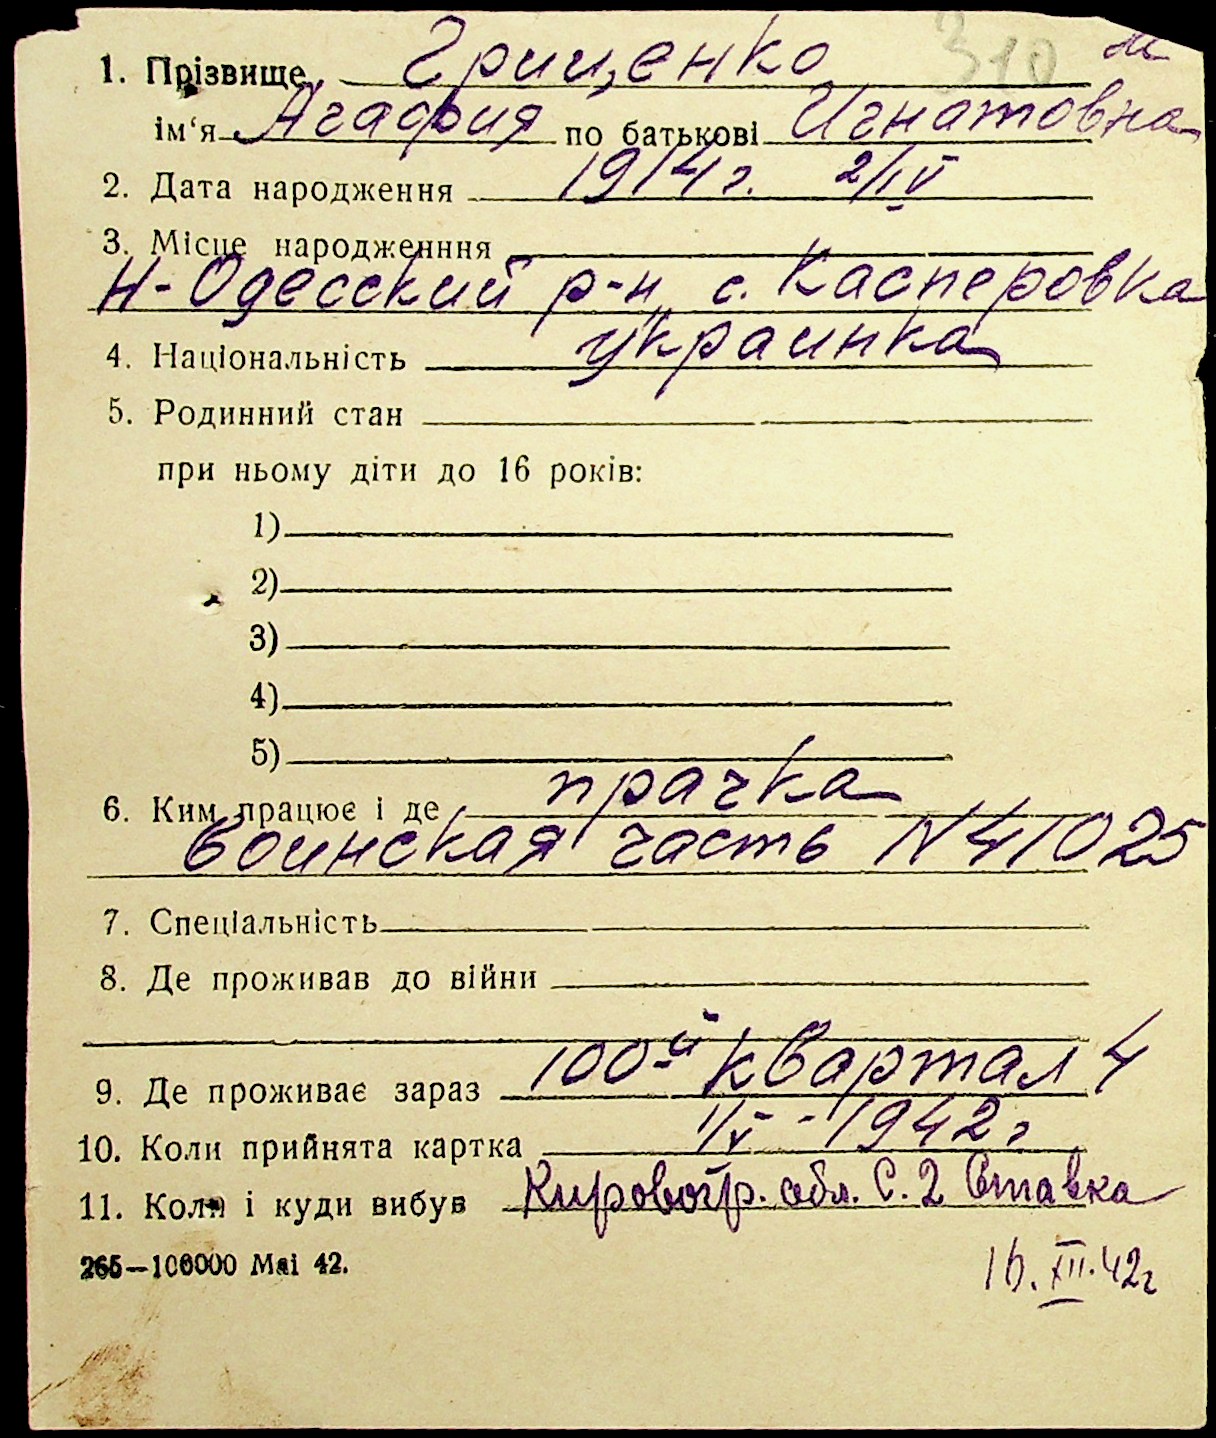 1. Прізвище Гриценко 310
ім‘я Агафия по батькові Игнатовна
2. Дата народження 1914 г. 2/IV
3. Місце народженння
Н-Одесский р-н с. Касперовка
4. Національність украинка
5. Родинний стан
при ньому діти до 16 років:
1)
2)
3)
4)
5)
6. Ким працює і де прачка
воинская часть N 41025
7. Спеціальність
8. Де проживав до війни
9. Де проживає зараз 100-й квартал 4
10. Коли прийнята картка 1/V - 1942 г
11. Коли і куди вибув Кировогр. обл. С. 2 Ставка
265—100000 Маі 42.
16. XII. 42 г